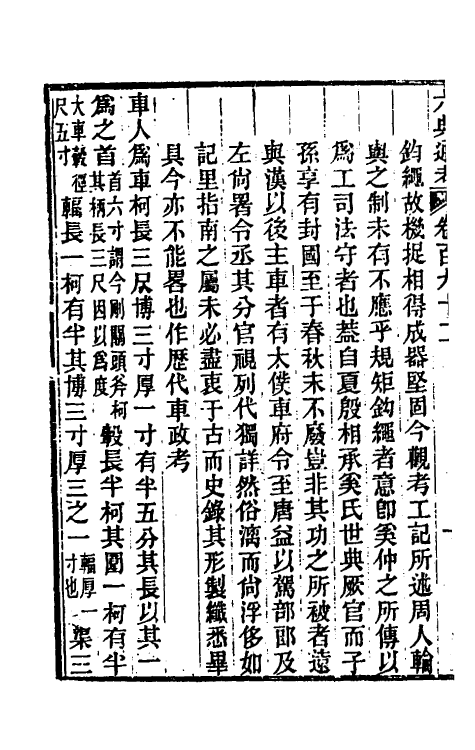 六典通考 卷百九十二
鈞繩故機捉相得成器堅固今觀考工記所述周人輪
輿之制未有不應乎規矩鈎繩者意卽奚仲之所傳以
爲工司法守者也葢自夏殷相承奚氏世典厥官而子
孫享有封國至于春秋末不廢豈非其功之所被者遠
與漢以後主車者有太僕車府令至唐益以駕部郎及
左尙署令丞其分官視列代獨詳然俗漓而尙浮侈如
記里指南之屬未必盡衷于古而史錄其形製纖悉畢
具今亦不能畧也作歷代車政考
車人爲車柯長三尺博三寸厚一寸有半五分其長以其一
爲之首首六寸謂今剛關頭斧柯其柄長三尺因以爲度轂長半柯其圍一柯有半
大車轂徑尺五寸輻長一柯有半其博三寸厚三之一輻厚一寸也渠三